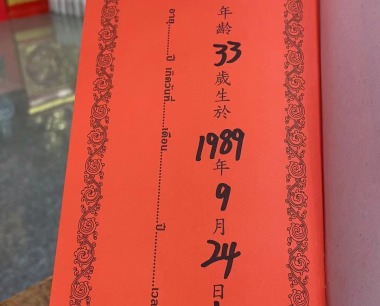 年齡 33 歲生於 1989 年 9 月 24 日
อายุ..........ปี เกิดวันที่..........เดือน....................ปี..........เวลา